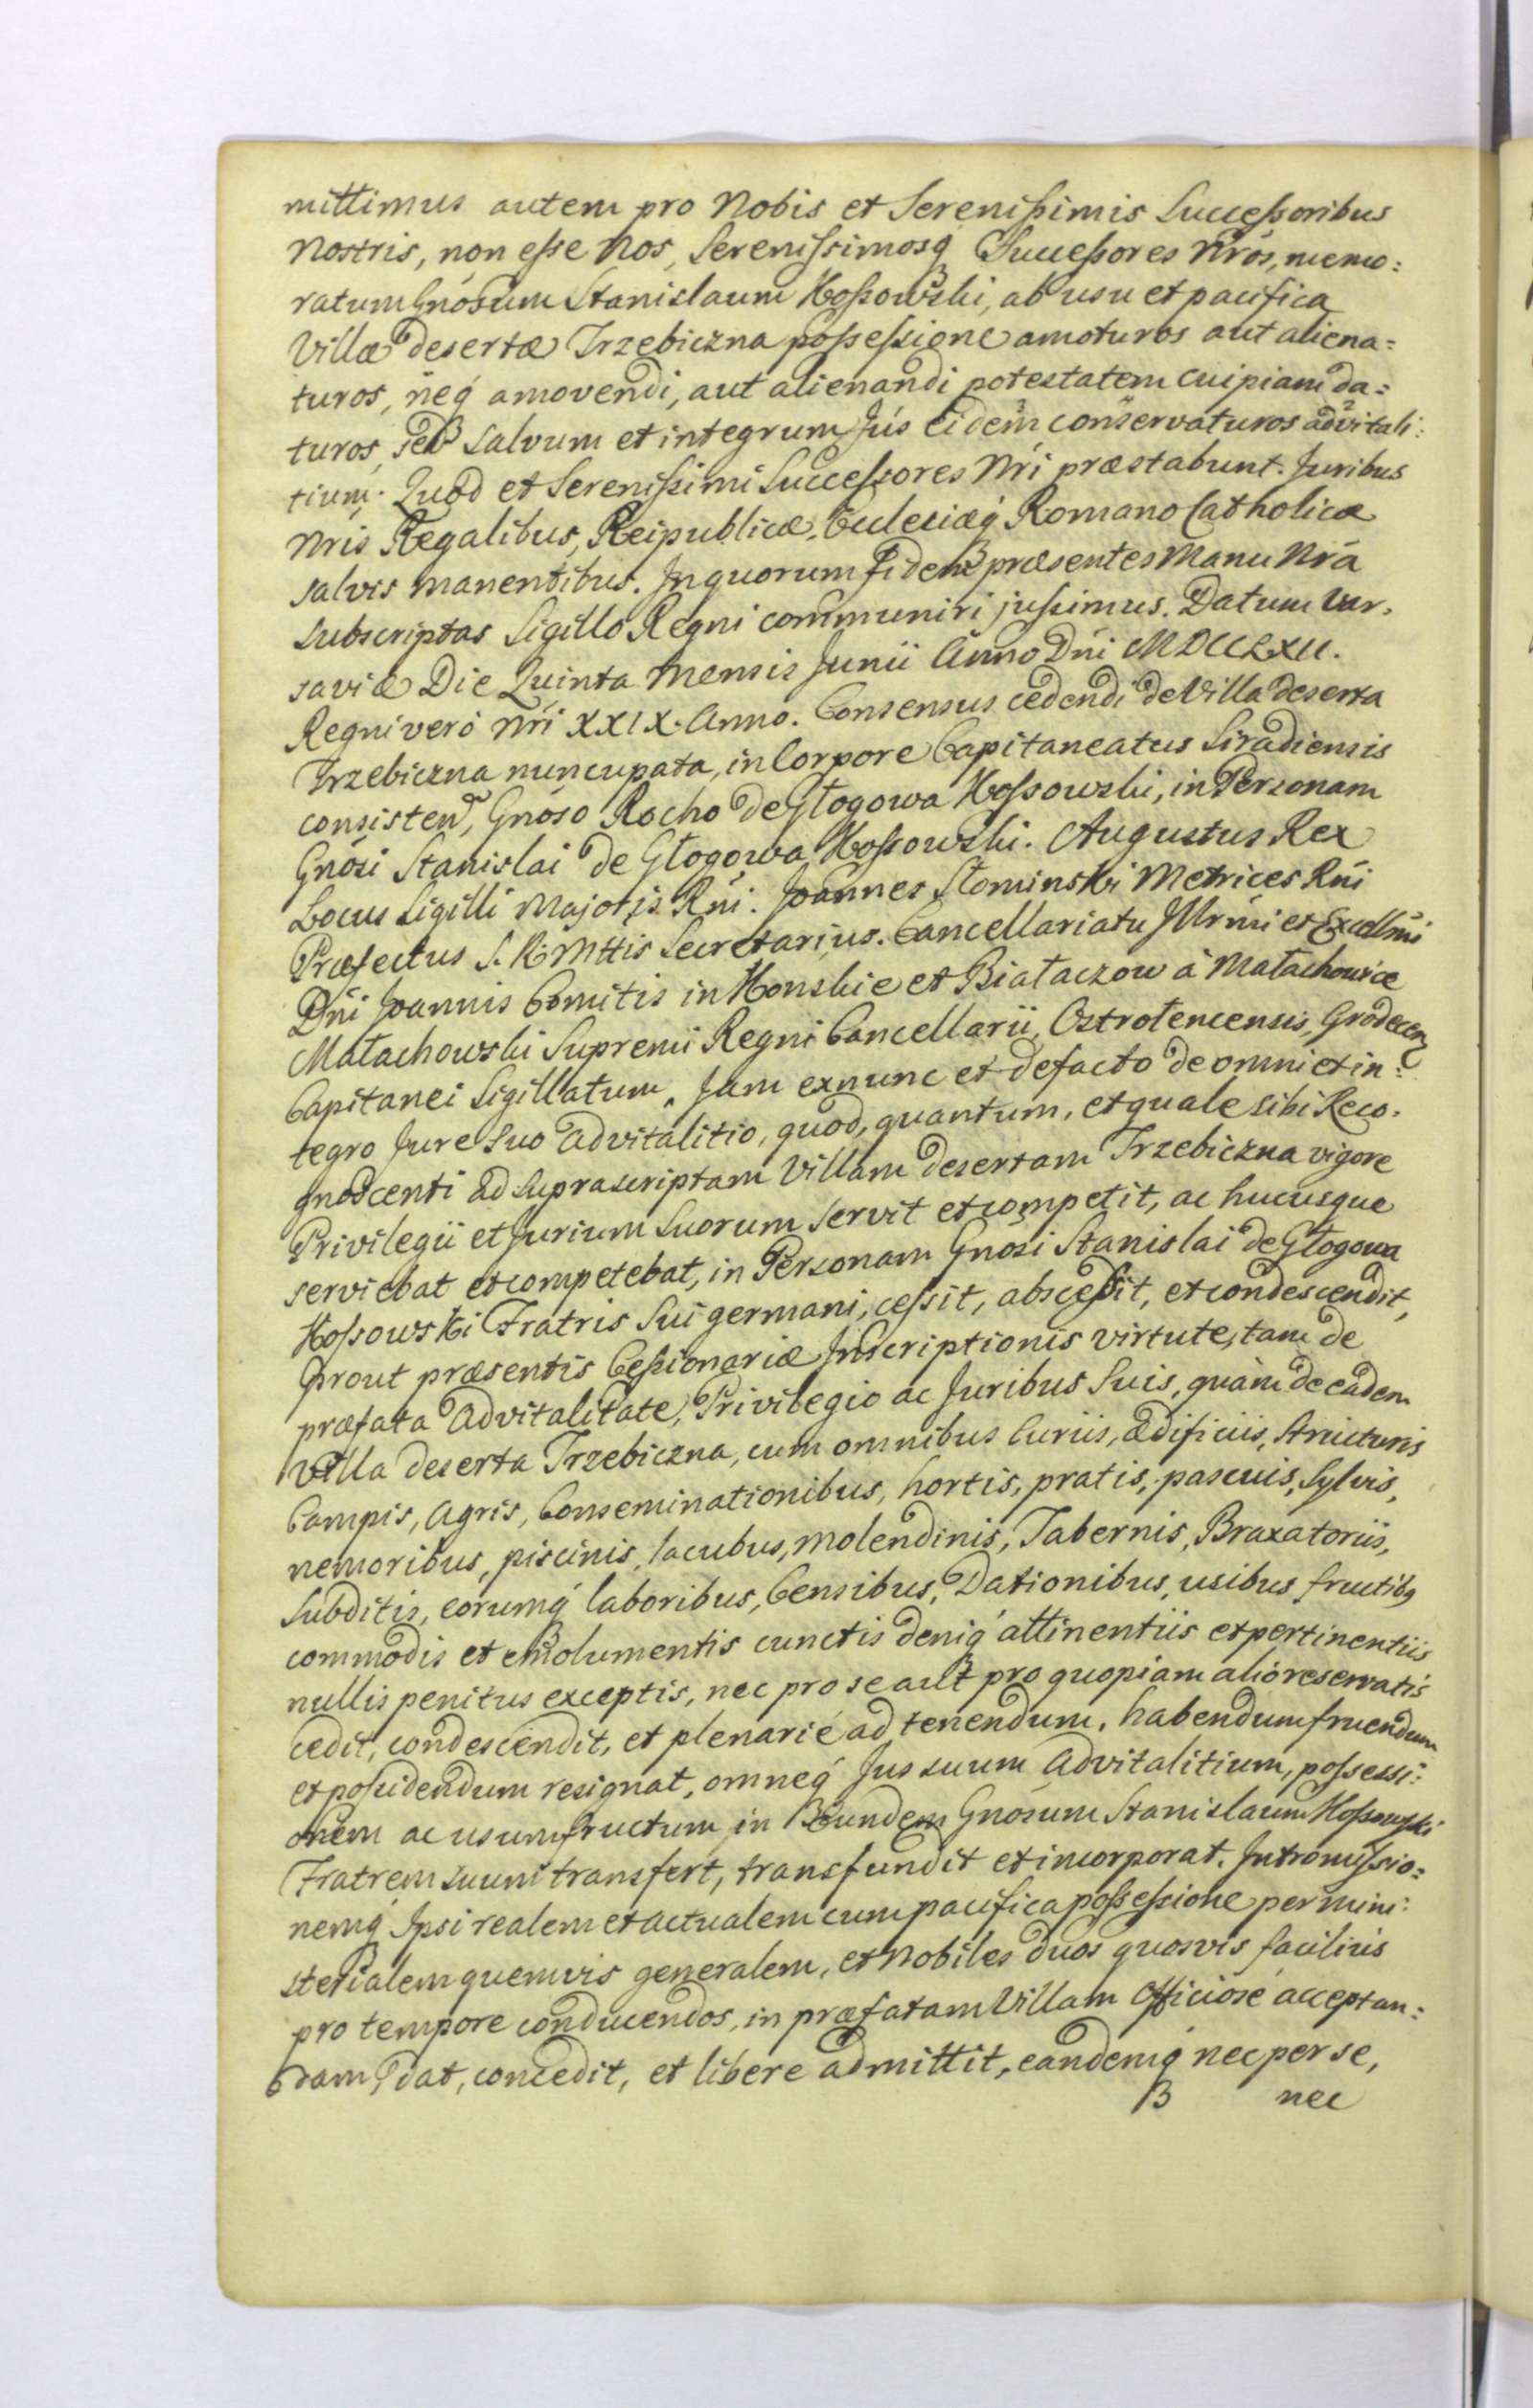 mittimus autem pro Nobis et Serenissimis Successoribus
Nostris, non esse Nos, Serenissimosq́ Successores Nrós, memo:
ratum Gnósum Stanislaum Kossowski, ab usu et pacifica
Villæ desertæ Trzebiczna possessione amoturos aut aliena:
turos, neq́ amovendi, aut alienandi potestatem cuipiam da:
turos, sed salvum et integrum Jus eidem conservaturos advitali:
tium. Quod et Serenissimi Successores Nri præstabunt. Juribus
Nris Regalibus, Reipublicæ, Ecclesiæq́ Romano Catholicæ
salvis manentibus. In quorum fidem præsentes Manu Nrá
subscriptas Sigillo Regni communiri jussimus. Datum Var.
saviæ Die Quinta Mensis Junii Anno Dni MDCCLXII.
Regni veró Nri XXIX. Anno. Consensus cedendi de Villa deserta
Trzebiczna nuncupata, in Corpore Capitaneatus Siradiensis
consisten, Gnóso Rocho de Głogowa Kossowski, in Personam
Gnósi Stanislai de Głogowa Kossowski. Augustus Rex
Locus Sigilli Majoris Rni. Joannes Słominski Metrices Rni
Præfectus S. R. Mttis Secretarius. Cancellariatu Illrmi et Excellmi
Dni Joannis Comitis in Konskie et Białaczow á Małachowice
Małachowski Supremi Regni Cancellarii, Ostrołencensis, Grodecen
Capitanei Sigillatum. Jam exnunc et defacto de omni et in:
tegro Jure suo advitalitio, quod, quantum, et quale sibi Reco.
gnoscenti ad suprascriptam Villam desertam Trzebiczna vigore
Privilegii et Jurium suorum servit et competit, ac hucusque
serviebat et competebat, in Personam Gnósi Stanislai de Głogowa
Kossowski Fratris sui germani, cessit, abscessit, et condescendit,
prout præsentis Cessionariæ Inscriptionis virtute, tam de
præfata Advitalitate, Privilegio ac Juribus suis, quám de eadem
villa deserta Trzebiczna, cum omnibus Curiis, ædificiis, structuris
Campis, Agris, Conseminationibus, hortis, pratis, pascuis, Sylvis,
nemoribus, piscinis, lacubus, molendinis, Tabernis, Braxatoriis,
Subditis, eorumq́ laboribus, Censibus, Dationibus, usibus fructibq
commodis et emolumentis cunctis deniq́ attinentiis et pertinentiis
nullis penitus exceptis, nec pro se aut pro quopiam alio reservatis
cedit, condescendit, et plenarié ad tenendum, habendum fruendum
et possidendum resignat, omneq́ Jus suum Advitalitium, possessi:
onem ac usumfructum in Eundem Gnósum Stanislaum Kossowski
Fratrem suum transfert, transfundit et incorporat. Intromissio:
nemq́ Ipsi realem et actualem cum pacifica possessione per mini:
sterialem quemvis generalem, et Nobiles duos quosvis facilius
pro tempore conducendos, in præfatam Villam Officiosé acceptan:
dam, dat, concedit, et libere admittit, eandemq́ nec per se,
B nec